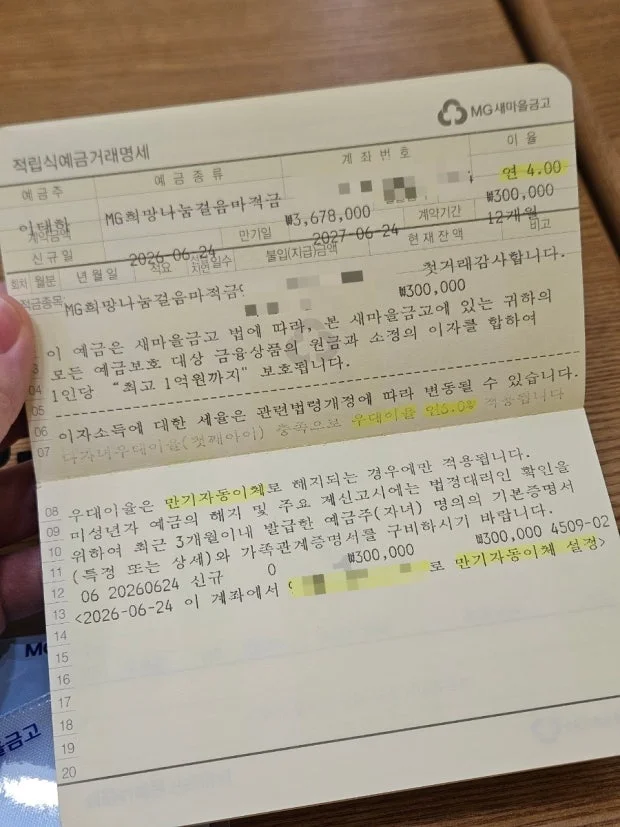 MG새마을금고
적립식예금거래명세
예금주 예금종류 계좌번호 이율
연 4.00
MG희망나눔걸음마적금 ₩3,678,000 ₩300,000
계약금액 계약기간 12개월
신규일 2026-06-24 만기일 2027-06-24
회차 월분 년월일 적요 불입(지급)금액 현재잔액 비고
적금종목 MG희망나눔걸음마적금 첫거래감사합니다.
₩300,000
이 예금은 새마을금고 법에 따라, 본 새마을금고에 있는 귀하의
03 모든 예금보호 대상 금융상품의 원금과 소정의 이자를 합하여
04 1인당 "최고 1억원까지" 보호됩니다.
05
06 이자소득에 대한 세율은 관련법령개정에 따라 변동될 수 있습니다.
07 다자녀우대이율(첫째아이) 충족으로 우대이율 적용됩니다
08 우대이율은 만기자동이체로 해지되는 경우에만 적용됩니다.
09 미성년자 예금의 해지 및 주요 제신고시에는 법정대리인 확인을
10 위하여 최근 3개월이내 발급한 예금주(자녀) 명의의 기본증명서
11 (특정 또는 상세)와 가족관계증명서를 구비하시기 바랍니다.
12 06 20260624 신규 0 ₩300,000 ₩300,000 4509-02
13 <2026-06-24 이 계좌에서 로 만기자동이체 설정>
14
15
16
17
18
19
20
금고